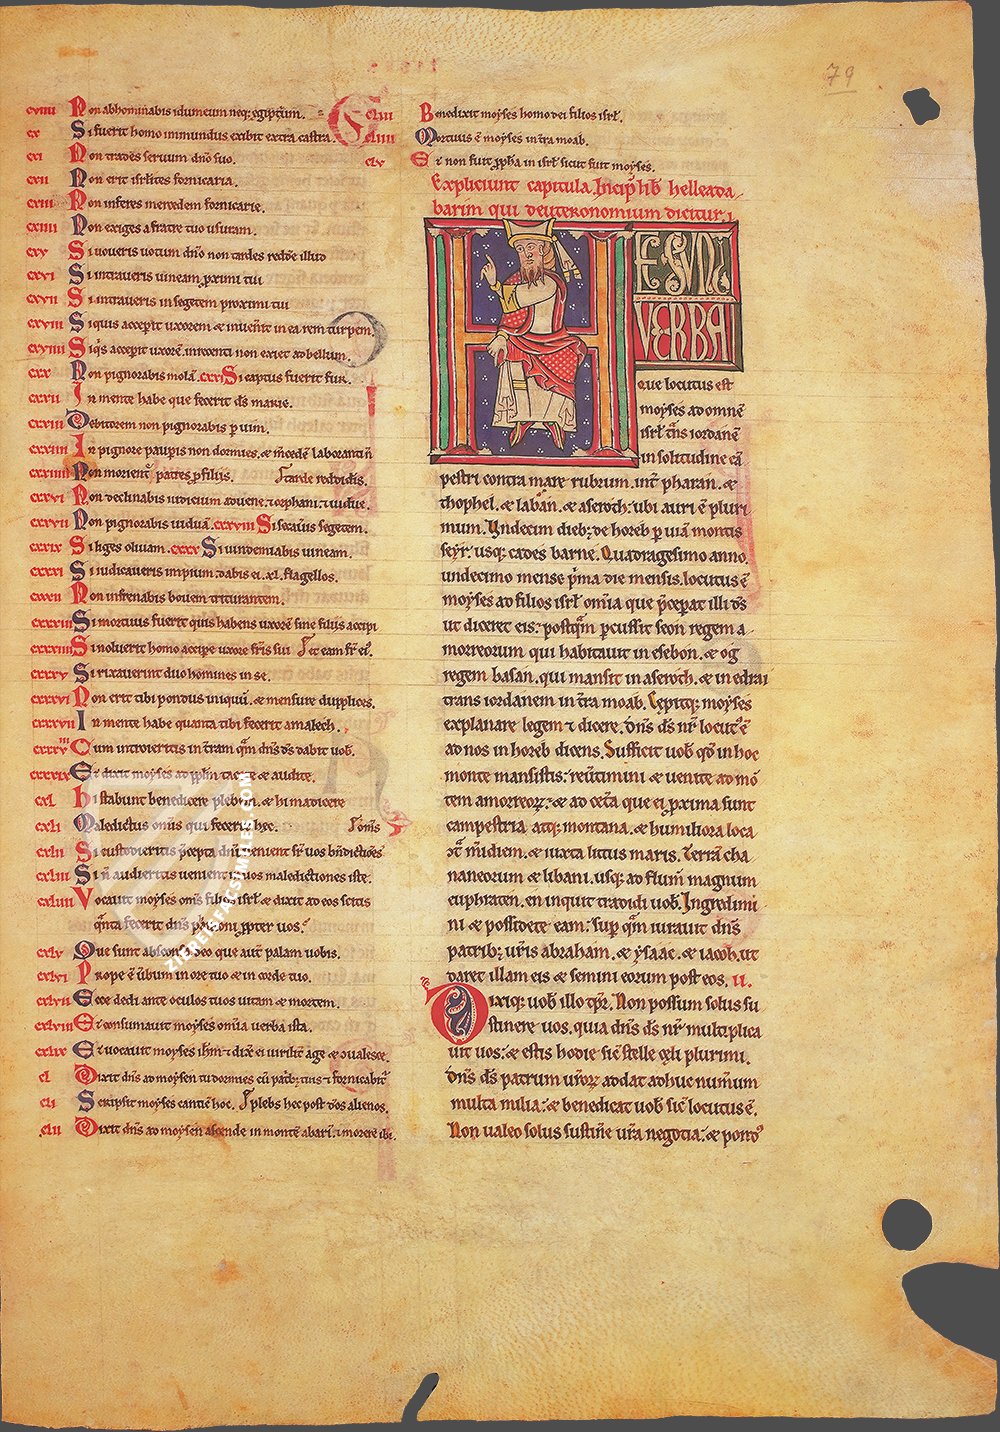 79
cviiii Non abhominabis idumeum neq; egiptium.
cx Si fuerit homo inmundus exibit extra castra.
cxi Non trades servum dno suo.
cxii Non erit isrłites fornicaria.
cxiii Non inferes mercedem fornicarie.
cxiiii Non exiges a fratre tuo usuram.
cxv Si voveris votum dno non tardes reddē illud
cxvi Si intraveris vineam proximi tui
cxvii Si intraveris in segetem proximi tui
cxviii Si quis acceperit uxorem & invenerit in ea rem turpem.
cxviiii Si q̄s acceperit uxorē. inrecenti non exiet ad bellum.
cxx Non pignorabis molā. cxxi Si captus fuerit fur.
cxxii In mente habe que fecerit ds marie.
cxxiii Debitorem non pignorabis
cxxiiii In pignore paupis non dormies. & mcedē laboranti n̄
tarde reddidis.
Non morient patres p filiis.
cxxvi Non declinabis iudicium advene. & orphani. & vidue.
cxxvii Non pignorabis viduā. cxxviii Si secaveris segetem.
cxxix Si liges olivam. cxxx Si vindemiabis vineam.
cxxxi Si iudicaveris impium. dabis ei. xl. flagellos.
cxxxii Non infrenabis bovem triturantem.
cxxxiii Si mortuus fuerit quis habens uxorē sine filiis accipi
et eam fr̄ ei'.
cxxxiiii Si noluerit homo accipe uxorē fr̄is sui
cxxxv Si rixaverint duo homines in se.
cxxxvi Non erit tibi pondus iniquū. & mensure dupplices.
cxxxvii In mente habe quanta tibi fecerit amalech.
Cum introieritis in t̄ram qm̄ dns ds dabit vob.
cxxxix Et dixit moyses ad pplm tace & audite.
cxl hi stabunt benedicere plebem. & hi maledicere
omis
cxli Maledictus omis qui fecerit hęc.
cxlii Si custodieritis p̄cepta dni venient sr̄ vos bn̄dictiōes
cxliii Si n̄ audieritis venient in vos maledictiones iste.
cxliiii Vocavit moyses oms filios isrł & dixit ad eos scitis
q̄nta fecerit dns pharaoni ppter vos.
cxlv Que sunt absconsa deo que aut palam vobis.
cxlvi Prope ē verbum in ore tuo & in corde tuo.
cxlvii Ecce dedi ante oculos tuos vitam & mortem.
cxlviii Et consumavit moyses omia verba ista.
cxlix Et vocavit moyses ihm & dixit ei viriliter age & convalesce.
cl Dixit dns ad moysen tu dormies cū patrib; tuis & fornicabit
cli Scripsit moyses canticū hoc. plebs hec post deos alienos.
clii Dixit dns ad moysen ascende in montē abari. & morere ibi.
cliii Benedixit moyses homo dei filios isrł.
cliiii Mortuus ē moyses in t̄ra moab.
clv Et non fuit ppha in isrł sicut fuit moyses.
Expliciunt capitula. Incip lib helleada
barim qui deuteronomium dicitur
HEC SUNT
VERBA
que locutus est
moyses ad omnē
isrł t̄ns iordanē
in solitudine cā
pestri contra mare rubrum. int pharan. &
thophel. & laban. & aseroth: ubi auri ē pluri
mum. Undecim dieb; de horeb p viā montis
seyr. usq; cades barne. Quadragesimo anno.
undecimo mense p̄ma die mensis. locutus ē
moyses ad filios isrł omia que p̄ceperat illi ds
ut diceret eis: postq̄m pcussit seon regem a
morreorum qui habitavit in esebon. & og
regem basan. qui mansit in aseroth. & in edrai
trans iordanem in t̄ra moab. Cępitq; moyses
explanare legem & dicere. Dns ds nr̄ locut' ē
ad nos in horeb dicens. Sufficit vob qd in hoc
monte mansistis: revtimini & venite ad mō
tem amorreor;. & ad cęta que ei pxima sunt
campestria atq; montana. & humiliora loca
cōt m̄idiem. & iuxta litus maris. Terrā cha
naneorum & libani. usq; ad flum magnum
euphraten. en inquit tradidi vob. Ingredimi
ni & possidete eam: sup q̄m iuravit dns
patrib; vr̄is abraham. & ysaac. & iacob. ut
daret illam eis & semini eorum post eos. ii.
Dixiq; vob illo tpr̄. Non possum solus su
stinere vos. quia dns ds nr̄ multiplica
vit vos: & estis hodie sic stelle cęli plurimi.
Dns ds patrum vr̄or; addat ad huc num̄um
multa milia: & benedicat vob sic locutus ē.
Non valeo solus sustiñe vr̄a negotia: & pond'
ZIEREIFACSIMILES.COM